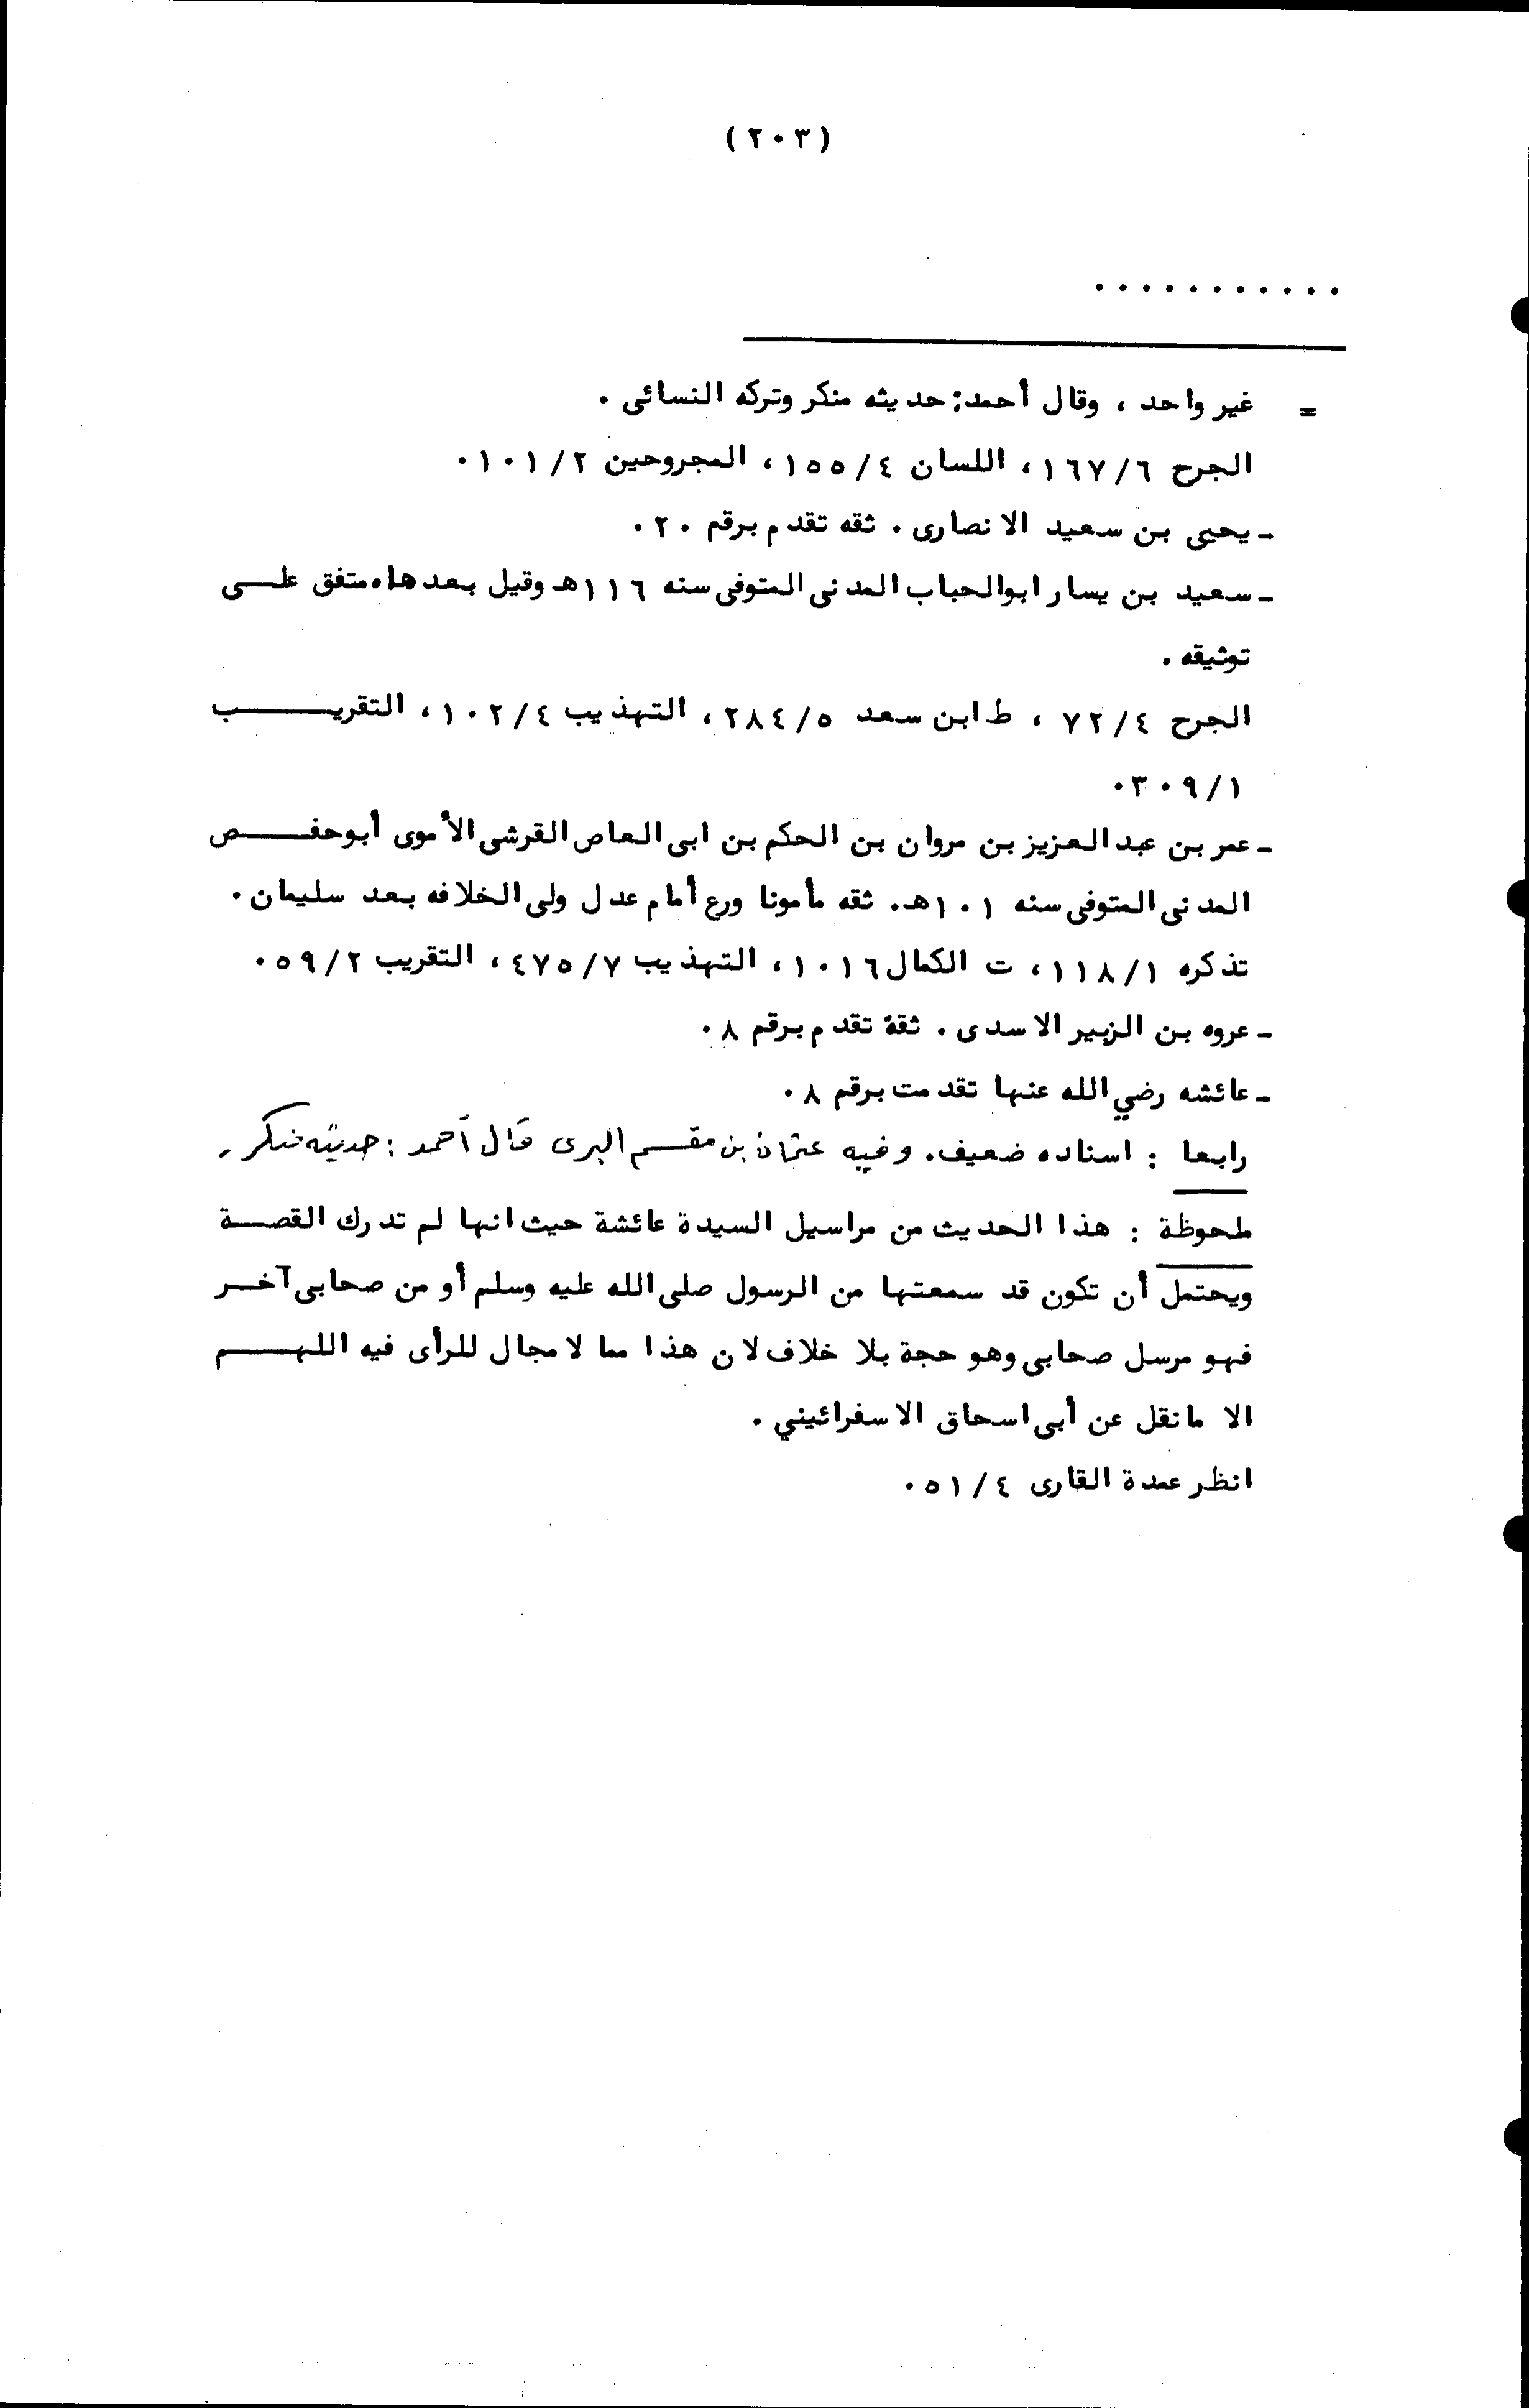 (٢٠٣)
...........
= غير واحد ، وقال أحمد: حديثه منكر وتركه النسائى .
الجرح ١٦٧/٦، اللسان ١٥٥/٤، المجروحين ١٠١/٢.
- يحيى بن سعيد الانصارى . ثقه تقدم برقم ٢٠.
- سعيد بن يسار ابوالحباب المدنى المتوفى سنه ١١٦هـ وقيل بعدها، متفق علـــى
توثيقه .
الجرح ٧٢/٤ ، ط ابن سعد ٢٨٤/٥، التهذيب ١٠٢/٤، التقريـــــب
٣٠٩/١.
- عمر بن عبد العزيز بن مروان بن الحكم بن ابى العاص القرشى الأموى أبوحفـــــص
المدنى المتوفى سنه ١٠١هـ. ثقه مأمونا ورع أمام عدل ولى الخلافه بعد سليمان .
تذكره ١١٨/١، ت الكمال ١٠١٦، التهذيب ٤٧٥/٧، التقريب ٥٩/٢.
- عروه بن الزبير الاسدى . ثقة تقدم برقم ٨.
- عائشه رضي الله عنها تقدمت برقم ٨.
رابعا : اسناده ضعيف. وفيه عثمان بن مقسم البرى قال أحمد : حديثه منكر.
ملحوظة : هذا الحديث من مراسيل السيدة عائشة حيث انها لم تدرك القصـــة
ويحتمل أن تكون قد سمعتها من الرسول صلى الله عليه وسلم أو من صحابى آخـــر
فهو مرسل صحابى وهو حجة بلا خلاف لان هذا مما لا مجال للرأى فيه اللهـــــم
الا مانقل عن أبى اسحاق الاسفرائيني .
انظر عمدة القارى ٥١/٤.